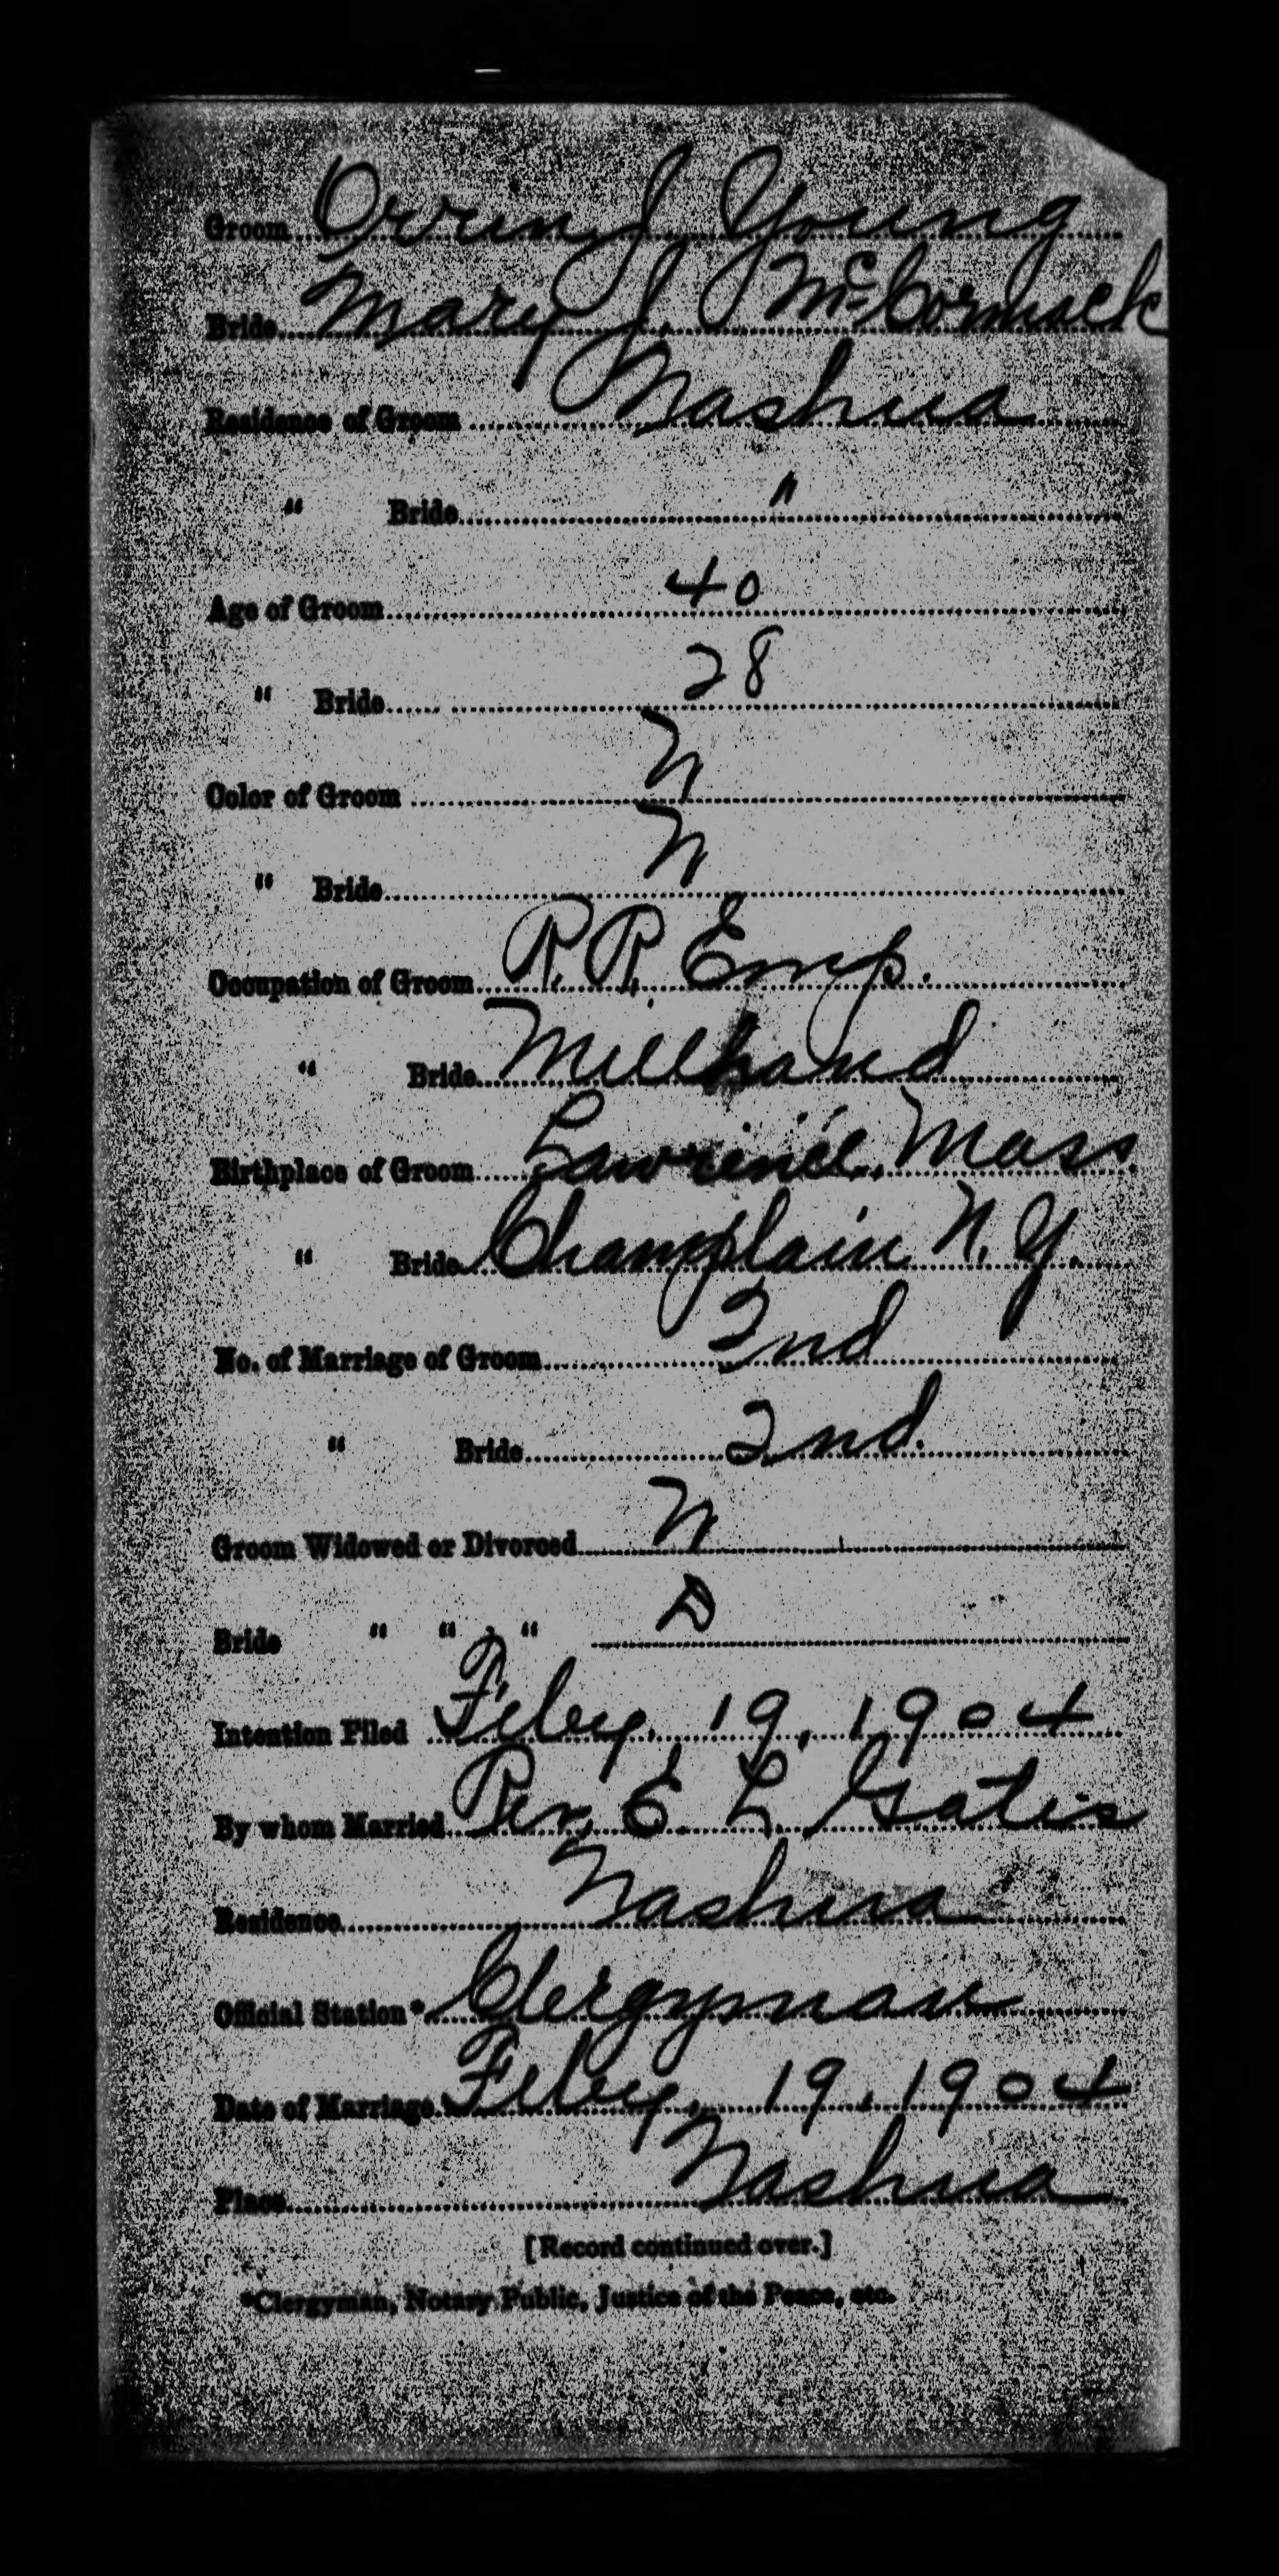 Groom Orrin J. Young
Bride Mary J. McCormack
Residence of Groom Nashua
" Bride "
Age of Groom 40
" Bride 28
Color of Groom W
" Bride W
Occupation of Groom R. R. Emp.
" Bride Millhand
Birthplace of Groom Lawrence, Mass.
" Bride Champlain N. Y.
No. of Marriage of Groom 2nd
" Bride 2nd.
Groom Widowed or Divorced W
Bride " " " D
Intention Filed Feby. 19, 1904
By whom Married Rev. E. L. Gates
Residence Nashua
Official Station* Clergyman
Date of Marriage Feby. 19, 1904
Place Nashua
[Record continued over.]
*Clergyman, Notary Public, Justice of the Peace, etc.